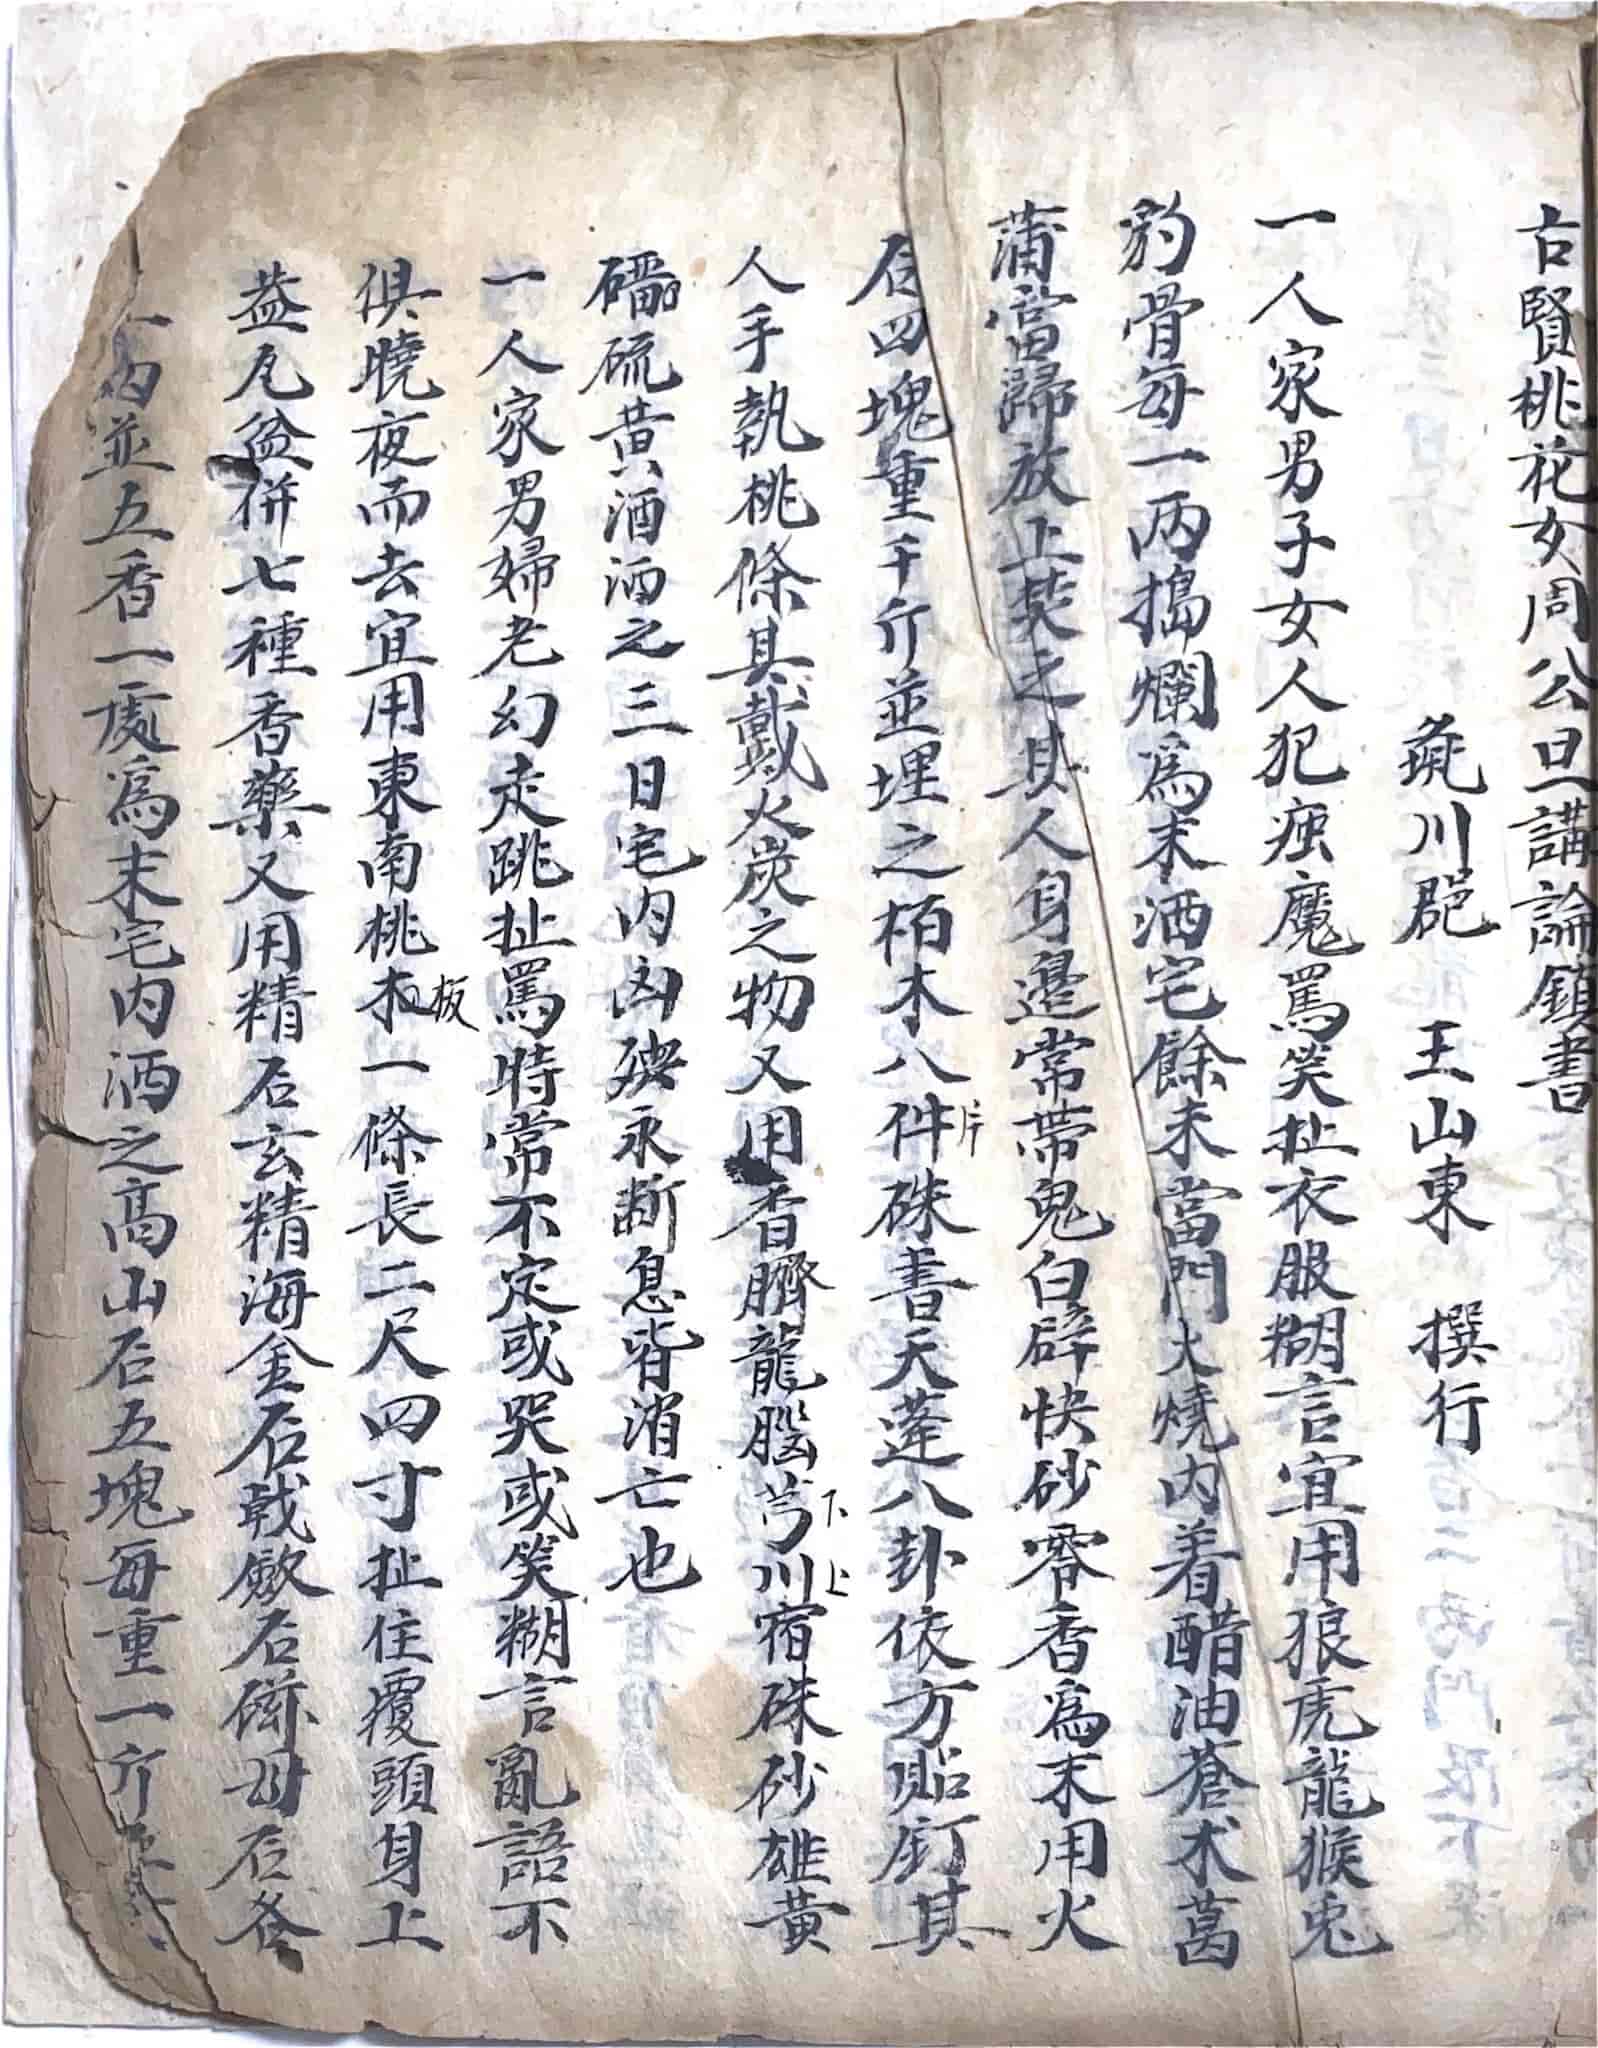 古賢桃花女周公旦講論鎮書
川郡 王山東 撰行
一人家男子女人犯㾏魔罵笑扯衣服糊言宜用狼虎龍猴兎
豹骨每一两搗爛爲末洒宅餘未當門火燒内着醋油蒼术葛
蒲當歸放上焚之其人身邉常帶鬼白辟快砂零香爲末用火
石四塊重千斤並埋之栢木八件片硃書天蓬八卦依方貼釘其
人手執桃條其戴火炭之物又用香臍龍腦芎下川上宿硃砂雄黃
硫黄酒洒之三日宅内凶殃永断息皆消亡也
一人家男婦老幻走跳扯罵時常不定或哭或笑糊言亂語不
俱曉夜而去宜用東南桃木板一條長二尺四寸扯住覆頭身上
盖瓦盆併七種香藥又用精石玄精海金石戟石石各
内並五香一處爲末宅内洒之高山石五塊每重一斤